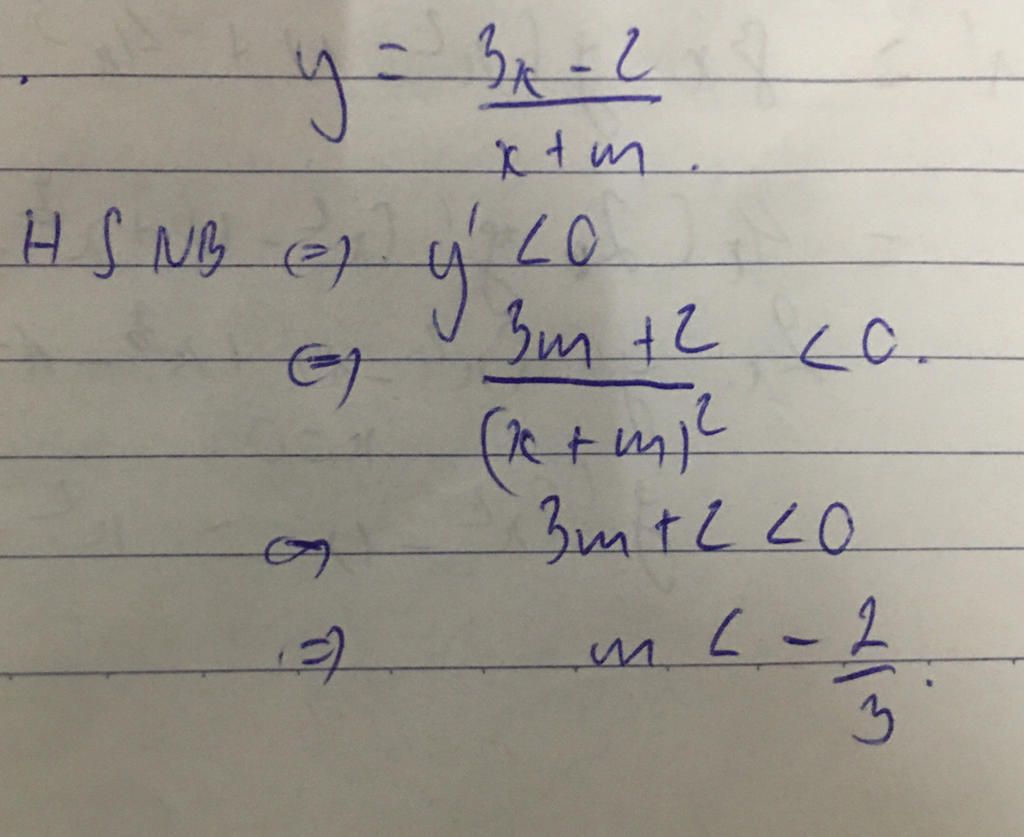 y = \frac{3x - 2}{x + m}.
HSNB ⇔ y' < 0
⇔ \frac{3m + 2}{(x + m)^2} < 0.
⇔ 3m + 2 < 0
⇒ m < -\frac{2}{3}.